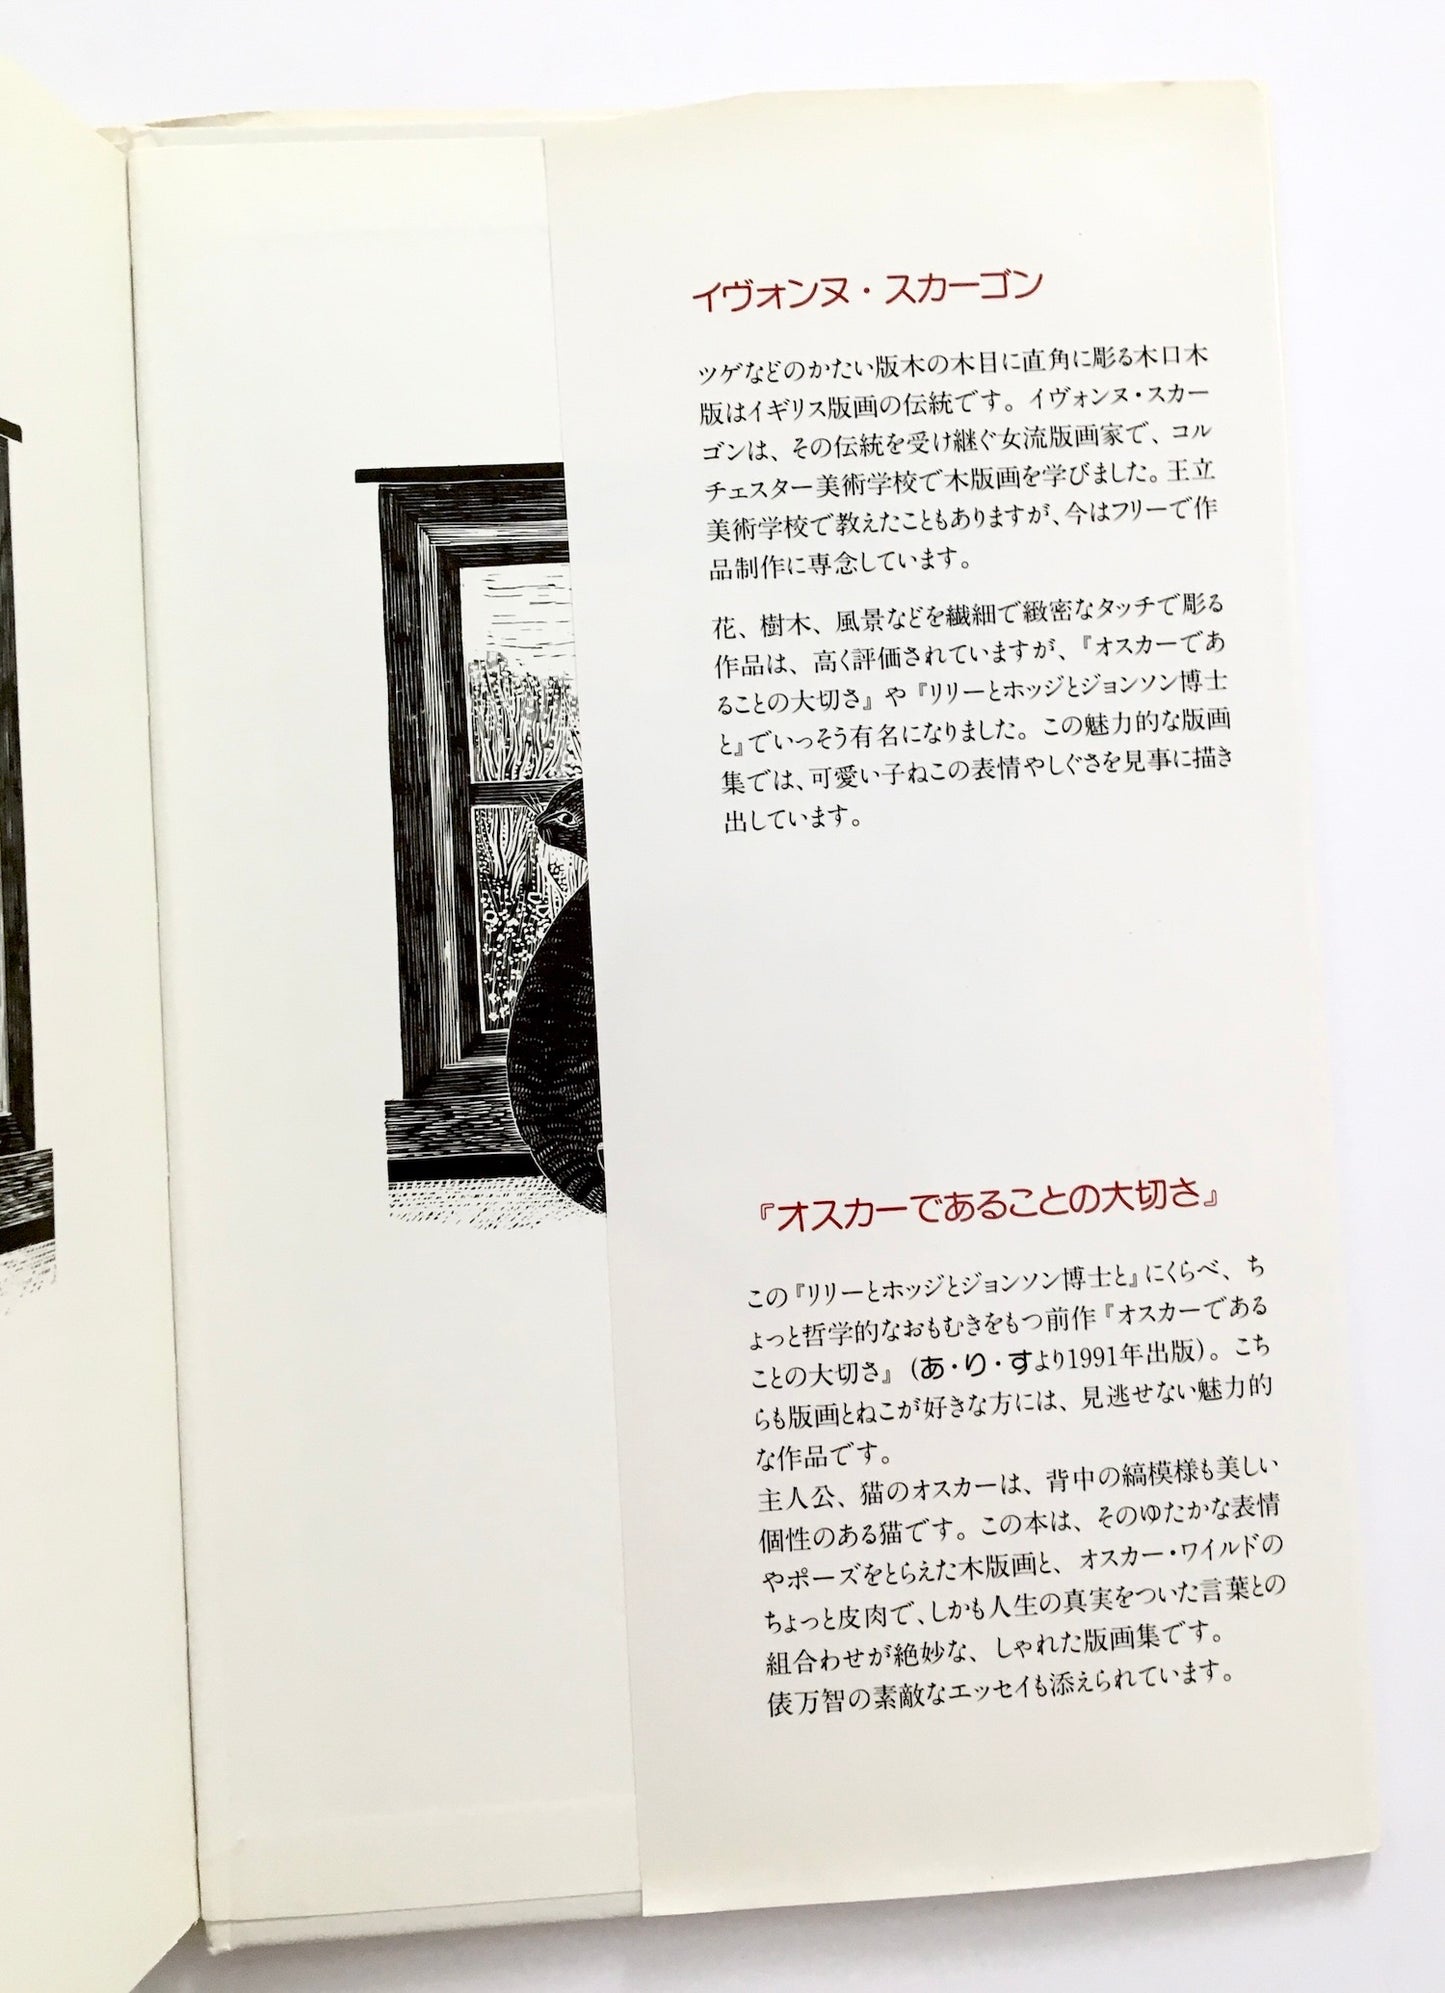 イヴォンヌ・スカーゴン
ツゲなどのかたい版木の木目に直角に彫る木口木
版はイギリス版画の伝統です。イヴォンヌ・スカー
ゴンは、その伝統を受け継ぐ女流版画家で、コル
チェスター美術学校で木版画を学びました。王立
美術学校で教えたこともありますが、今はフリーで作
品制作に専念しています。
花、樹木、風景などを繊細で緻密なタッチで彫る
作品は、高く評価されていますが、『オスカーであ
ることの大切さ』や『リリーとホッジとジョンソン博士
と』でいっそう有名になりました。この魅力的な版画
集では、可愛い子ねこの表情やしぐさを見事に描き
出しています。
『オスカーであることの大切さ』
この『リリーとホッジとジョンソン博士と』にくらべ、ち
ょっと哲学的なおもむきをもつ前作『オスカーである
ことの大切さ』(あ・り・すより1991年出版)。こち
らも版画とねこが好きな方には、見逃せない魅力的
な作品です。
主人公、猫のオスカーは、背中の縞模様も美しい
個性のある猫です。この本は、そのゆたかな表情
やポーズをとらえた木版画と、オスカー・ワイルドの
ちょっと皮肉で、しかも人生の真実をついた言葉との
組合わせが絶妙な、しゃれた版画集です。
俵万智の素敵なエッセイも添えられています。